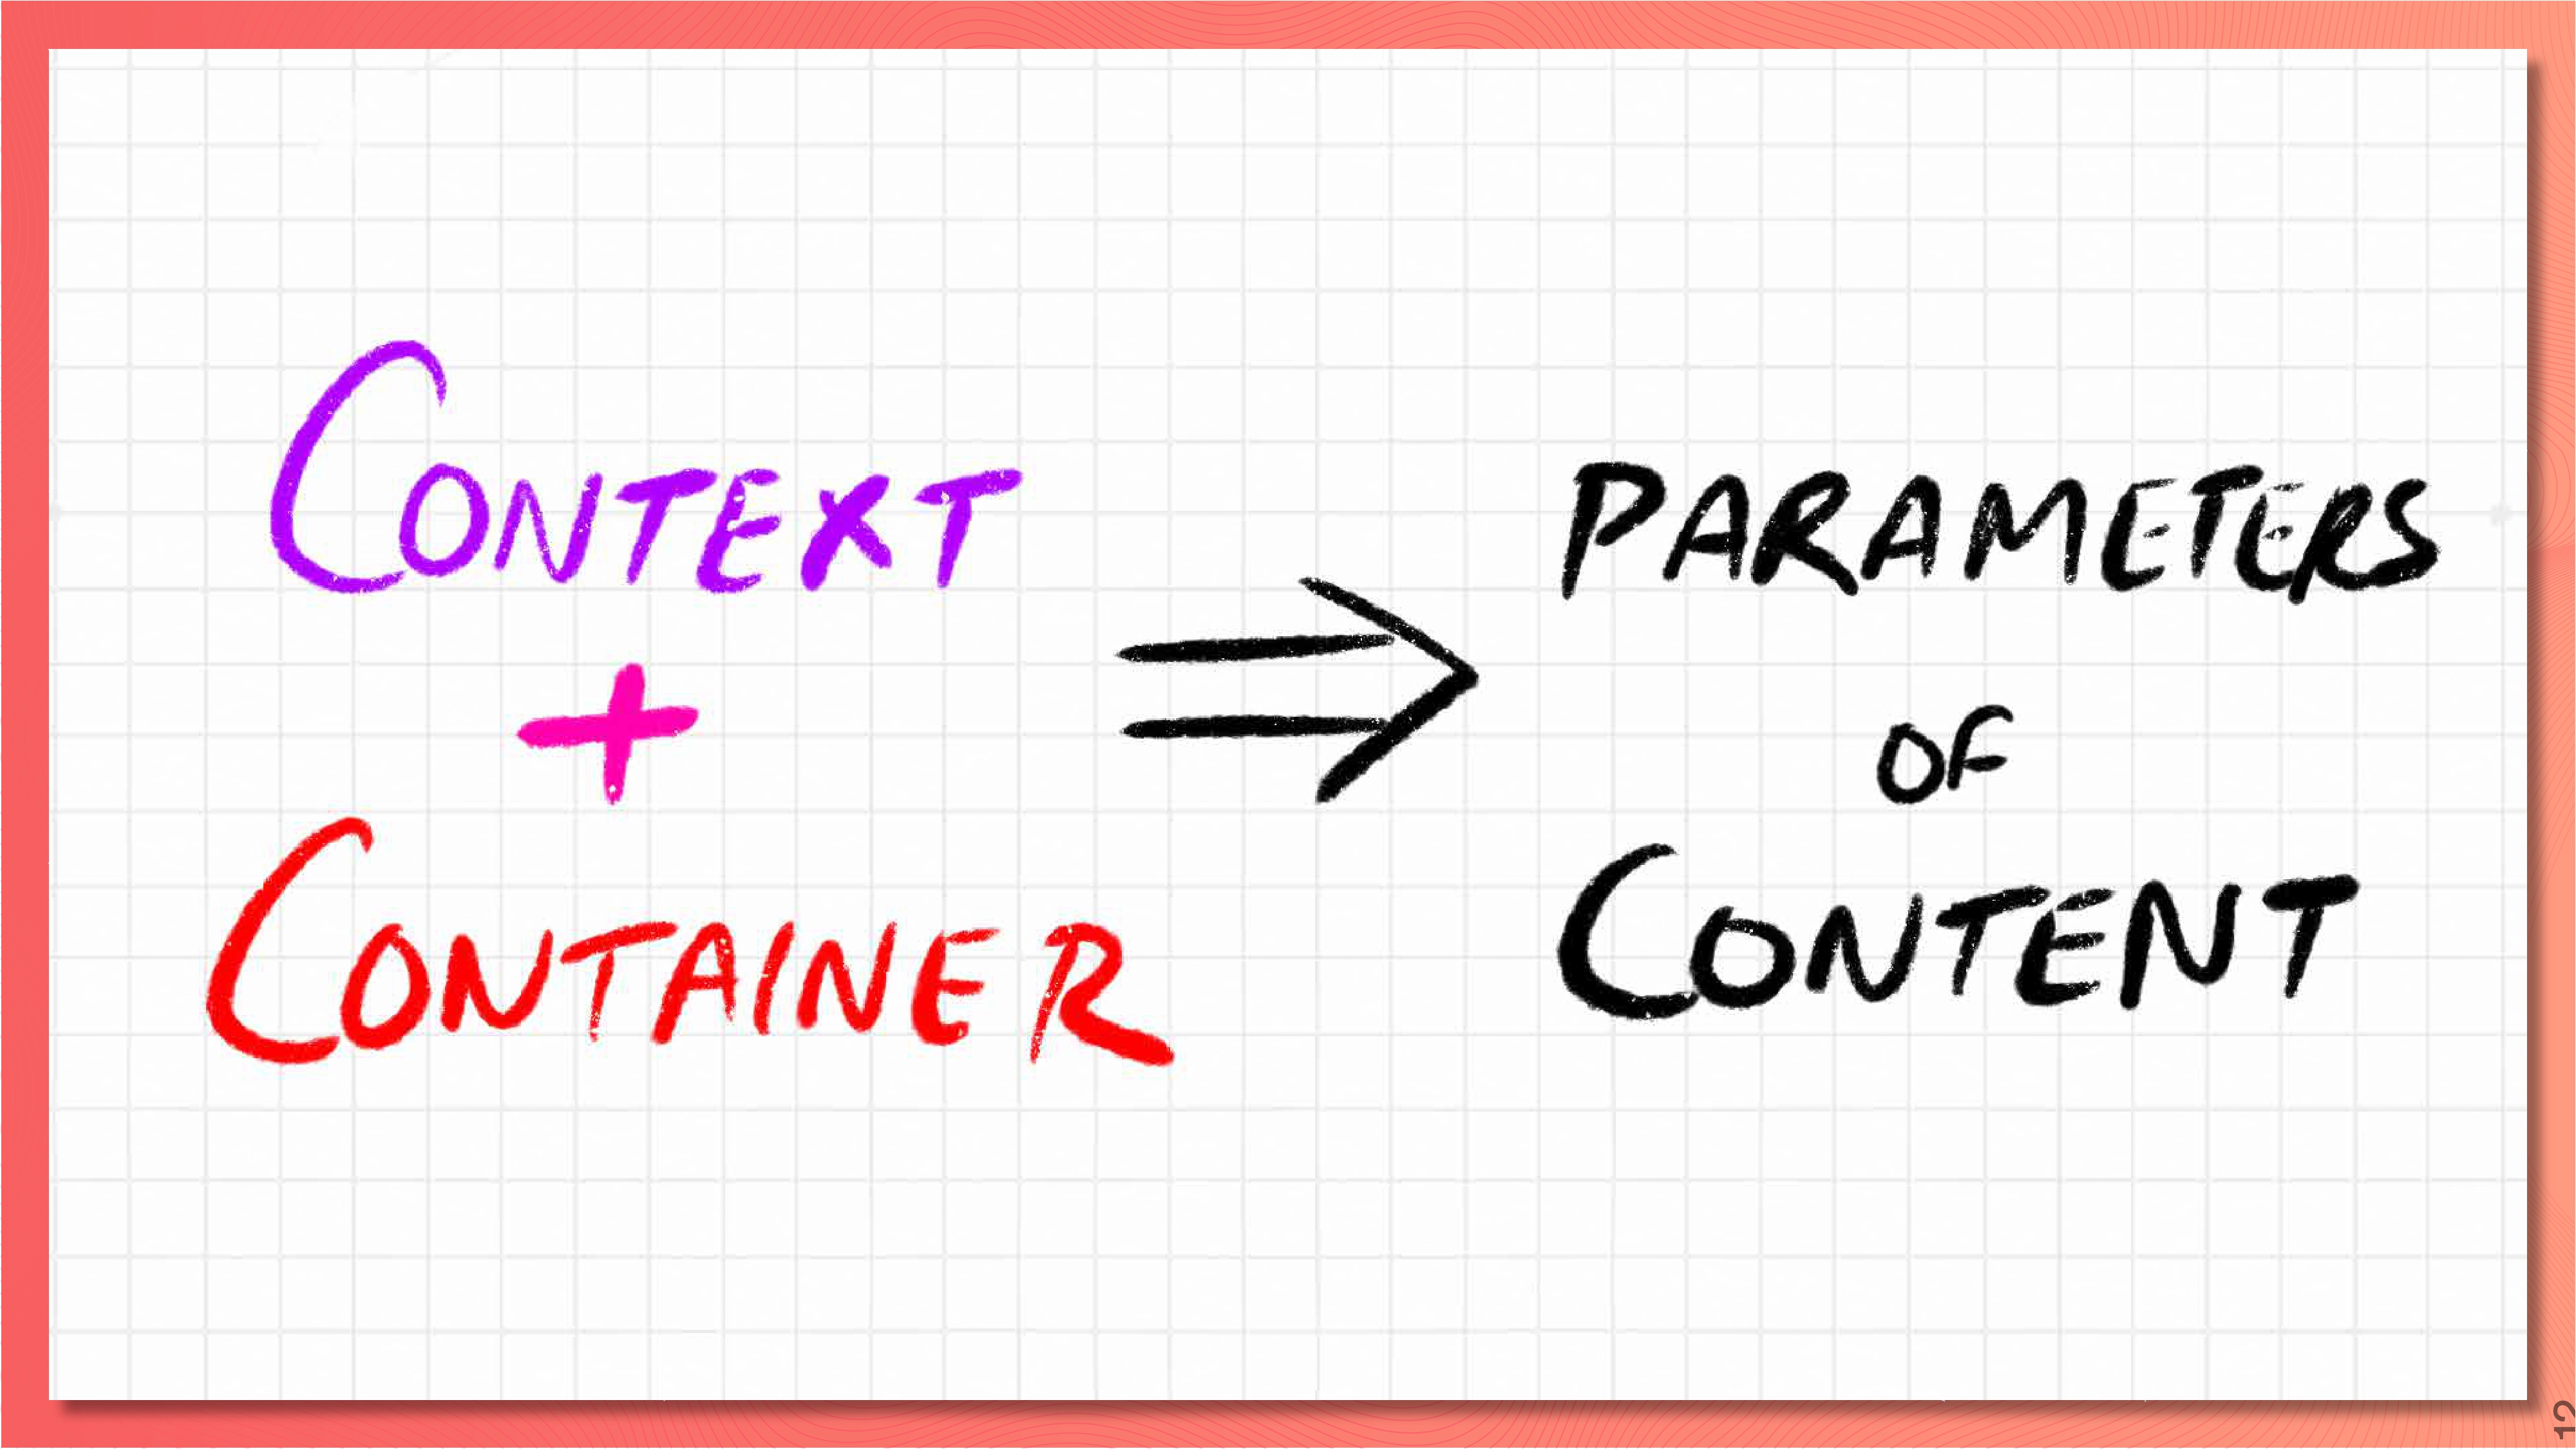 CONTEXT
+
CONTAINER
⇒
PARAMETERS
OF
CONTENT
12